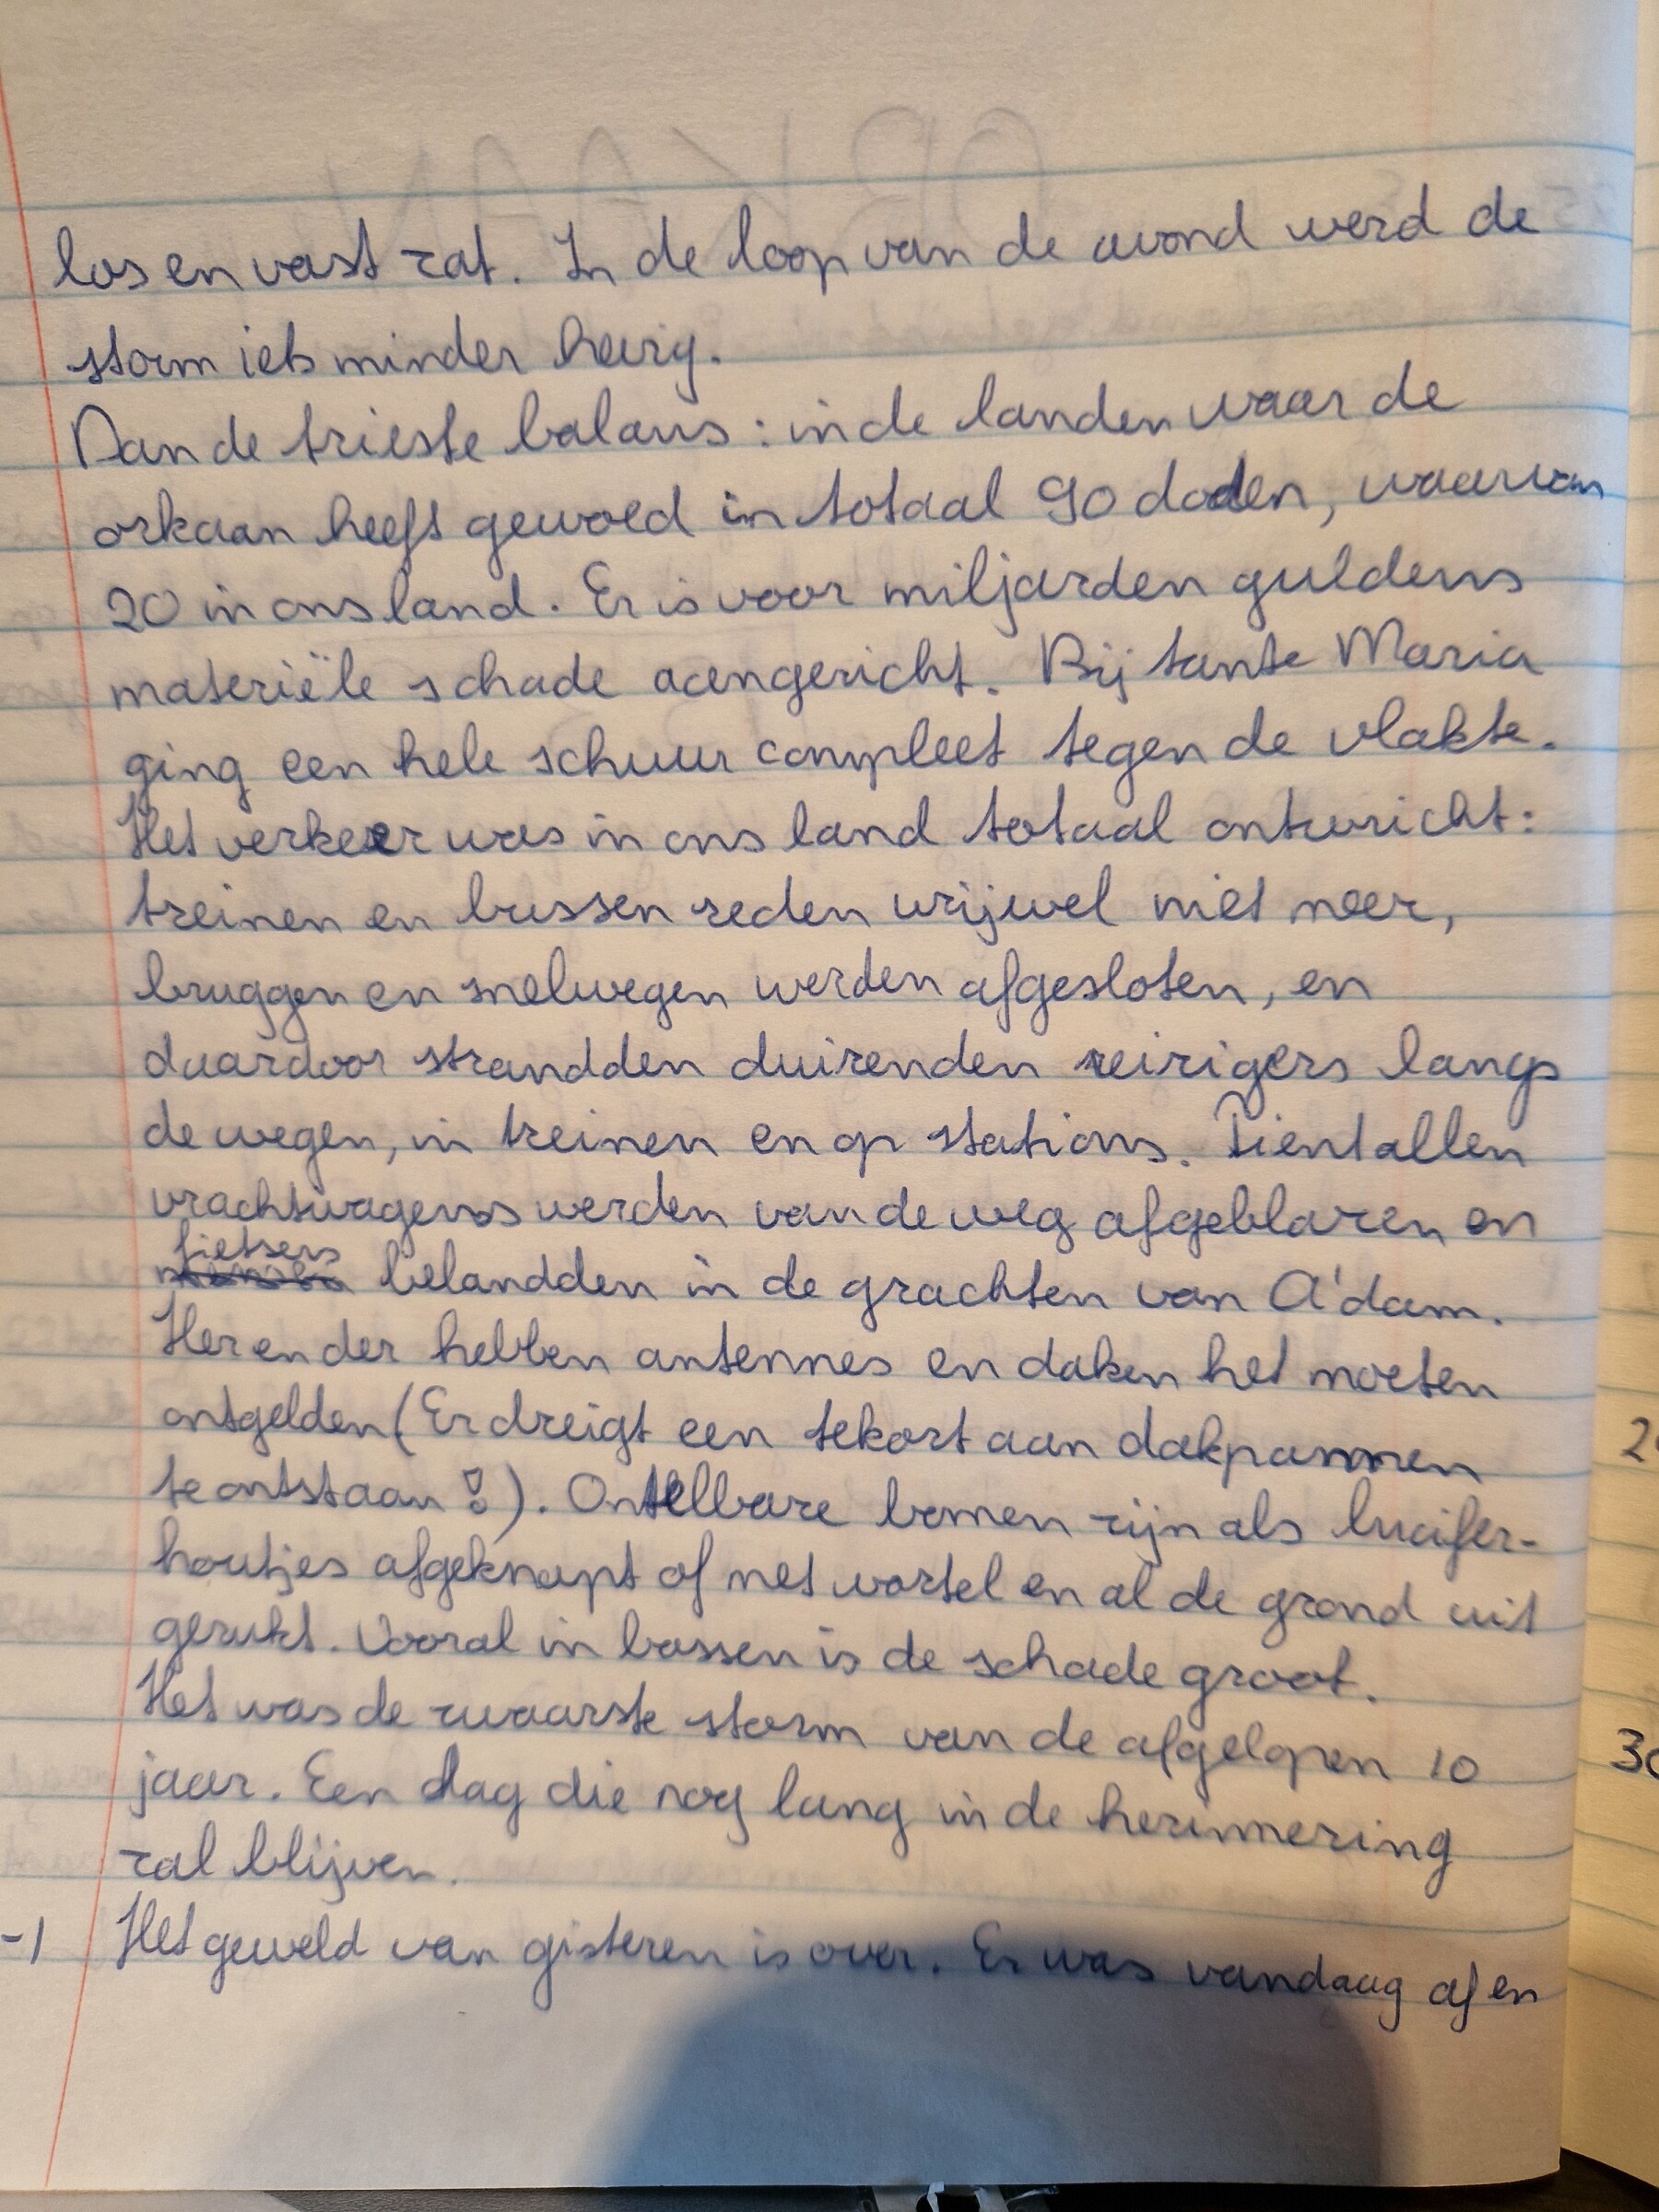 los en vast zat. In de loop van de avond werd de
storm iets minder hevig.
Dan de trieste balans: in de landen waar de
orkaan heeft gewoed in totaal 90 doden, waarvan
20 in ons land. Er is voor miljarden guldens
materiële schade aangericht. Bij tante Maria
ging een hele schuur compleet tegen de vlakte.
Het verkeer was in ons land totaal ontwricht:
treinen en bussen reden vrijwel niet meer,
bruggen en snelwegen werden afgesloten, en
daardoor strandden duizenden reizigers langs
de wegen, in treinen en op stations. Tientallen
vrachtwagens werden van de weg afgeblazen en
fietsers belandden in de grachten van A'dam.
Her en der hebben antennes en daken het moeten
ontgelden (Er dreigt een tekort aan dakpannen
te ontstaan!). Ontelbare bomen zijn als lucifer-
houtjes afgeknapt of met wortel en al de grond uit
gerukt. Vooral in bossen is de schade groot.
Het was de zwaarste storm van de afgelopen 10
jaar. Een dag die nog lang in de herinnering
zal blijven.
-1 Het geweld van gisteren is over. Er was vandaag af en